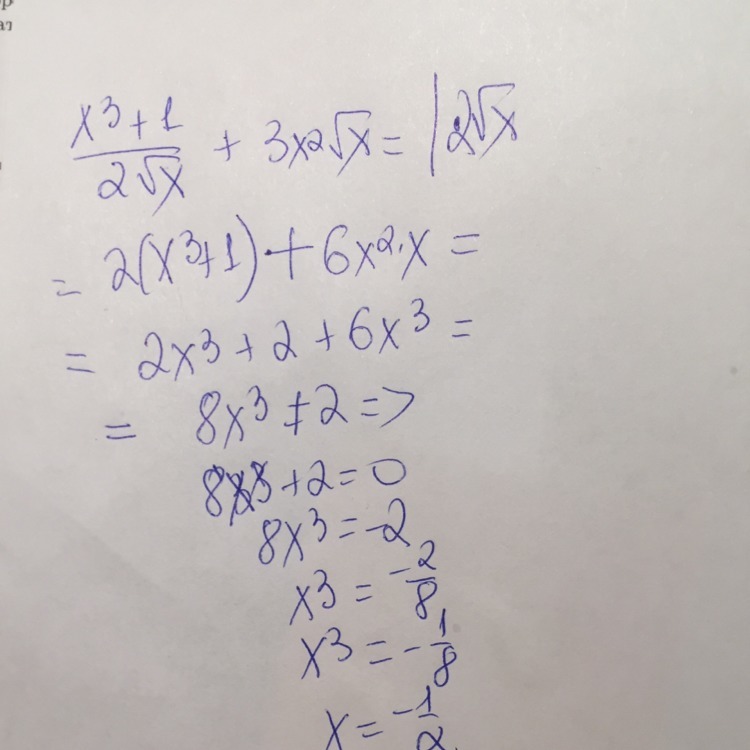 ар
ат
x³+1/2√x + 3x²√x = |2√x
= 2(x³+1)·+ 6x²·x =
= 2x³ + 2 + 6x³ =
= 8x³ + 2 =>
8x³ + 2 = 0
8x³ = -2
x³ = -2/8
x³ = -1/8
x = -1/2